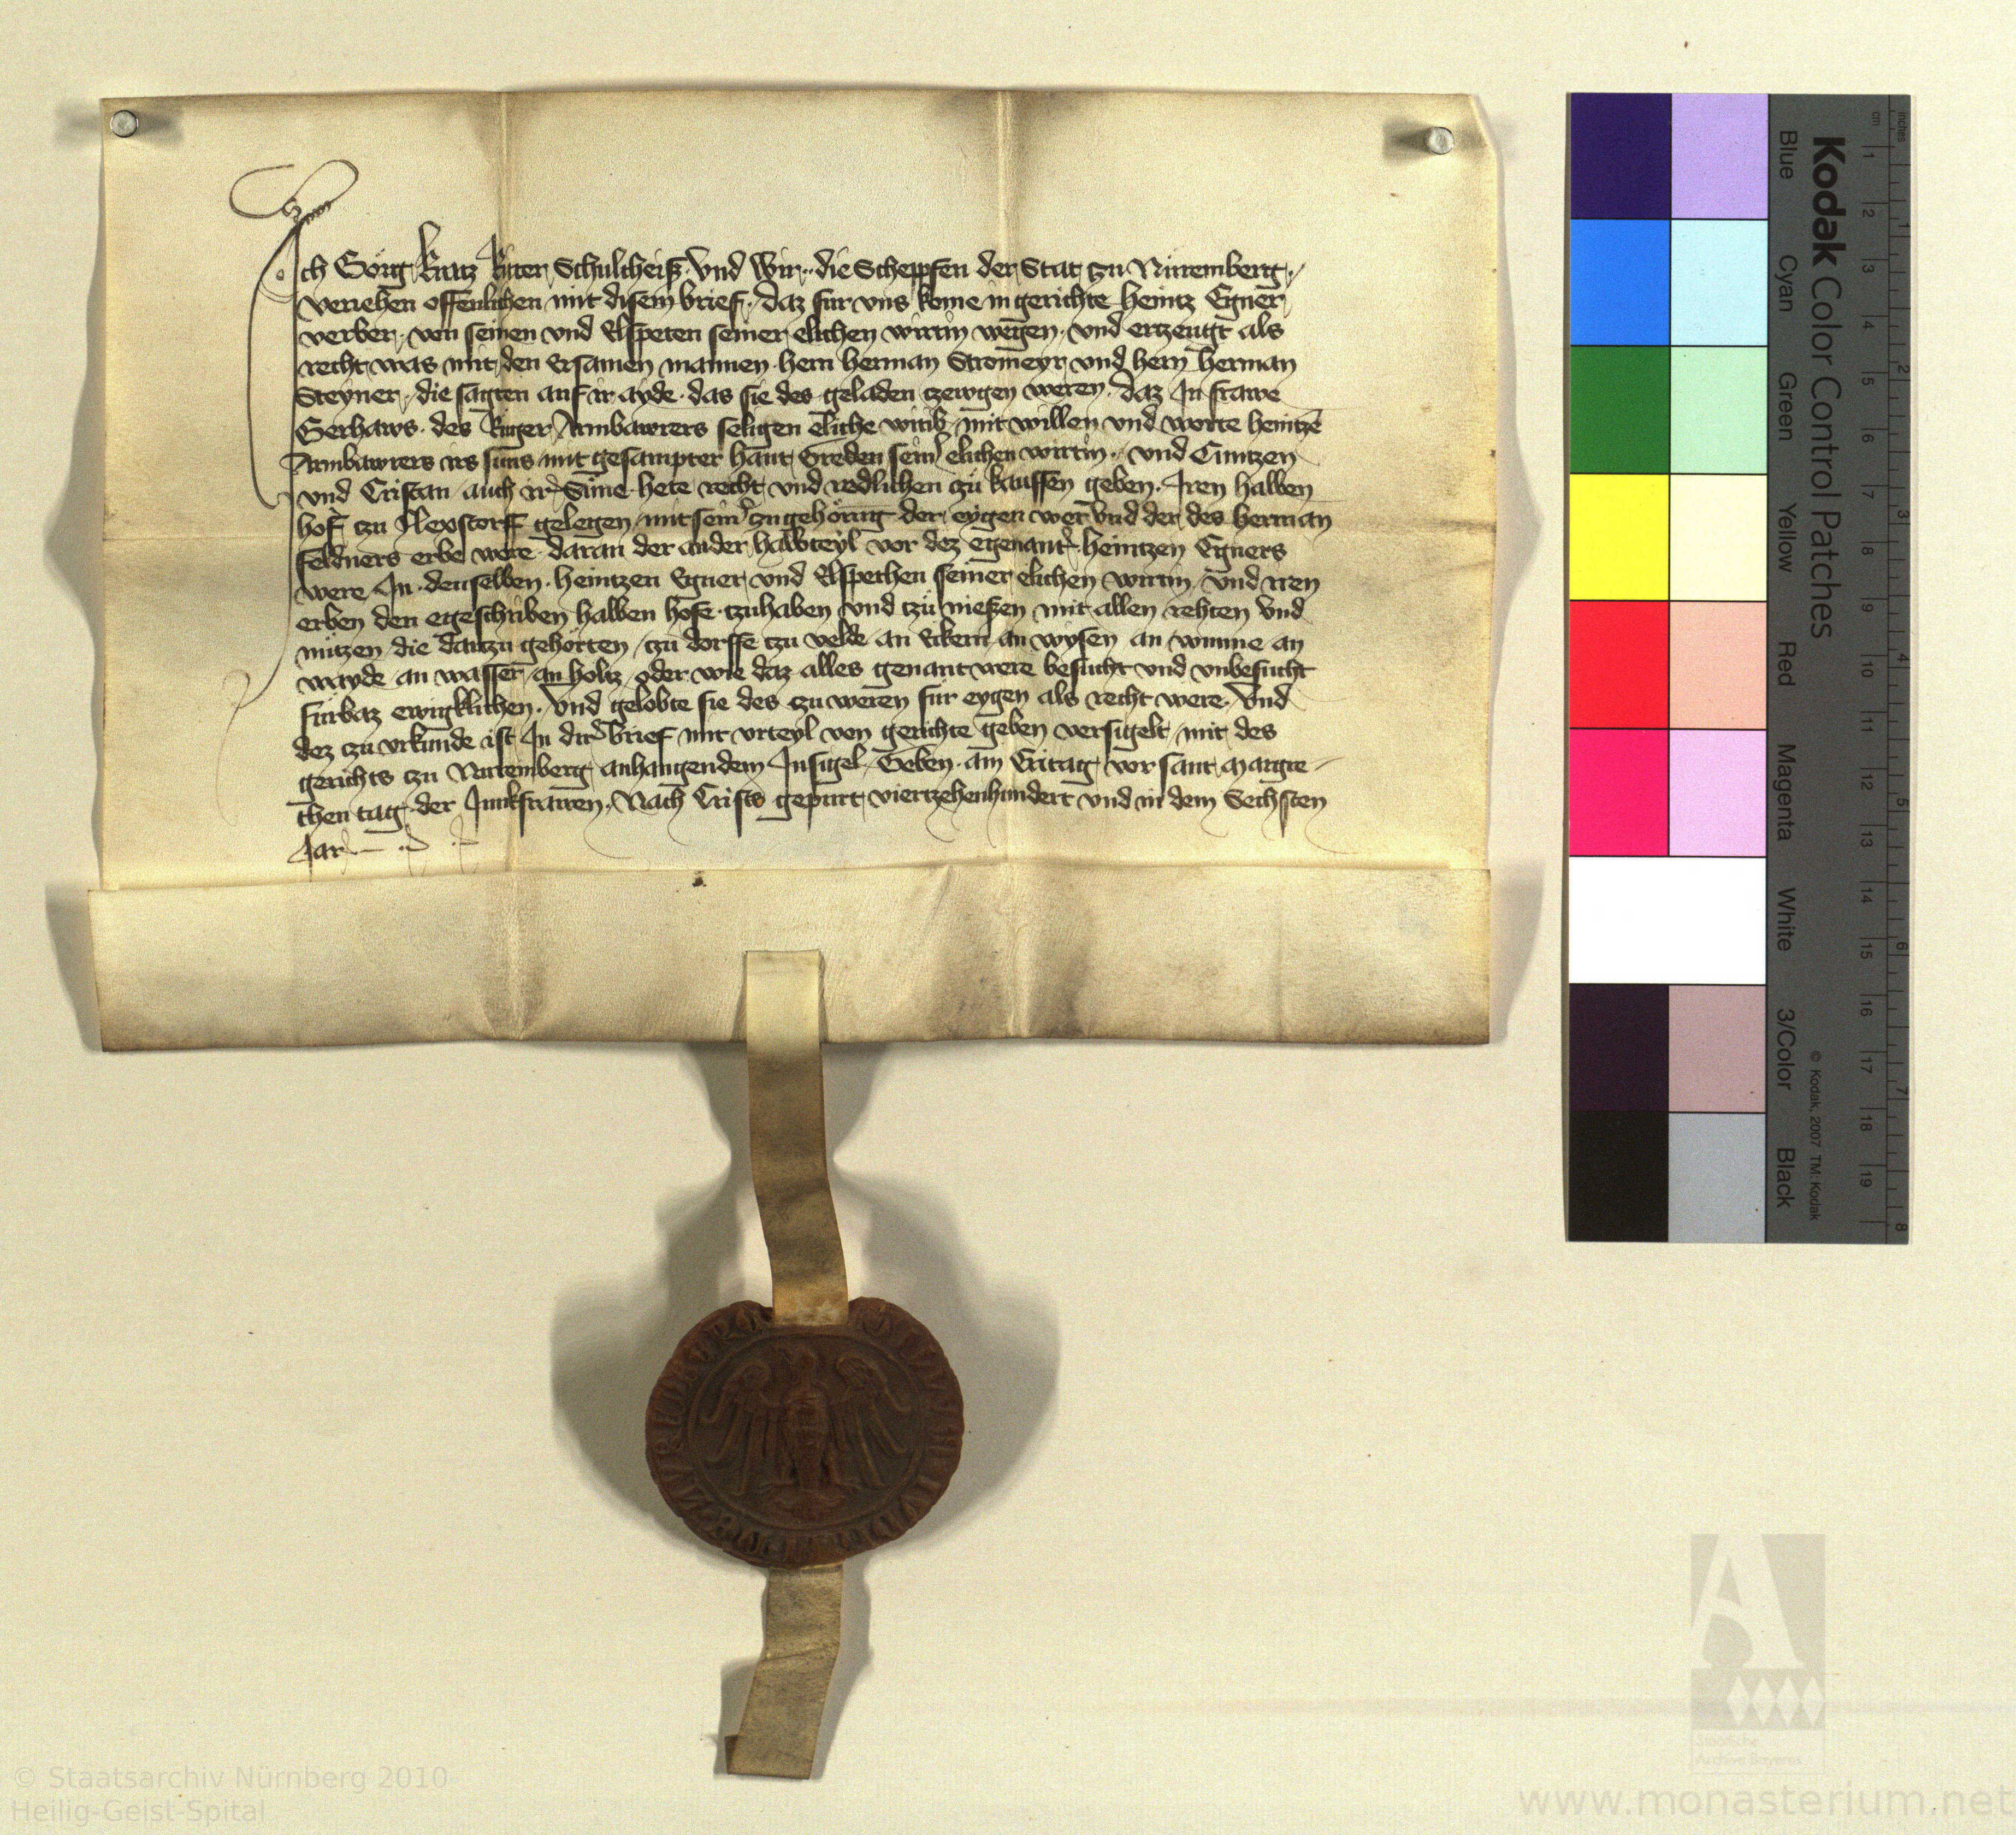 Ich Görg Kratz Riter Schultheiß vnd Wir die Scheppfen der Stat zu Nuremberg
veriehen offenlichen mit disem brief, daz fur vns kome in gerichte Heintz Egner
verber, von seinen vnd Elspeten seiner elichen wirtin wegen, vnd ertzeugt als
recht was mit den Ersamen mannen hern herman Stromeyr vnd hern herman
Steyner, die sagten auf ir ayde, das sie des geladen zewgen weren, daz In frawe
Gerhaws, des Rüger Armbawrers seligen eliche witib mit willen vnd worte heintzē
Armbawrers irs suns mit gesampter hant Greden sein elichen wirtin, vnd Cuntzen
vnd Cristan auch ir Süne hete recht vnd redlichen zü kauffen geben, Iren halben
hof zu gelegen mit sein zugehörung der eygen wer vnd der des herman
feldners erbe were daran der ander halbteyl vor dez egenant heintzen Egners
were In denselben heintzen Egner vnd Elspethen seiner elichen wirtin vnd iren
erben den egeschriben halben hofe tzuhaben vnd tzü nießen mit allen rehten vnd
nützen die dartzu gehörten, tzü dorffe tzu velde an Eckern an wysen an wunne an
wayde an wasser an holtz, oder wie daz alles genant were besucht vnd vnbesucht
fürbaz ewigklichen, vnd gelobte sie des zu weren für eygen als recht were, vnd
dez zu vrkunde ist In dir brief mit vrteyl von gerichte geben versigelt mit des
gerichts zu Nuremberg anhangendem Insigel, Geben am Eritag vor sant Margre-
then tag der Junkfrawen, Nach Crists gepurt viertzehenhundert vnd in dem Sechsten
Jar
Kodak Color Control Patches
Blue Cyan Green Yellow Red Magenta White 3/Color Black
© Kodak, 2007 TM: Kodak
cm 1 2 3 4 5 6 7 8 9 10 11 12 13 14 15 16 17 18 19
inches 1 2 3 4 5 6 7 8
Staatliche
Archive Bayerns
© Staatsarchiv Nürnberg 2010
Heilig-Geist-Spital
www.monasterium.net